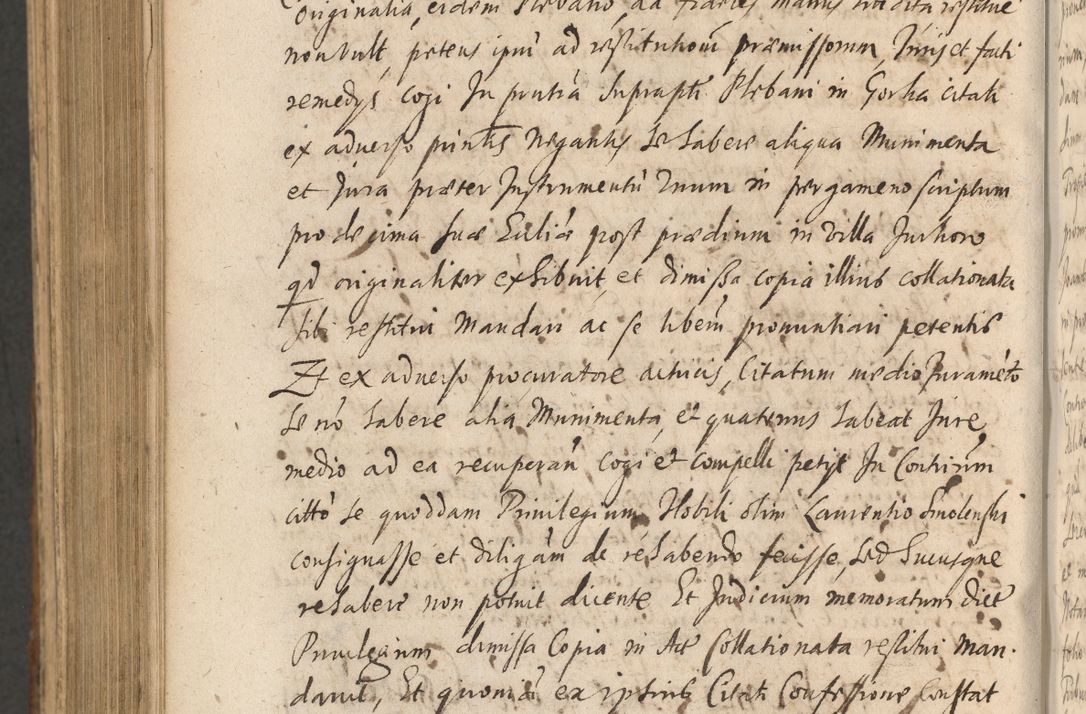 Originalia, eidem Plebano, ad fideles manus tradita restitue
non vult, petens ipm̄ ad restitutionem præmissorum, Juris et facti
remedijs cogi In pntia suprapti Plebani in Gorka citati
ex aduerso pnntis negantis se habere aliqua Munimenta
et Jura præter Instrumentū vnum in pergameno scriptum
pro decima suæ Ecclīæ post prædium in villa
qd originaliter exhibuit, et dimissa copia illius collationata
sibi restitui Mandari ac se liberū pronuntiari petentis
Et ex aduerso procuratore actricis, Citatum medio Juramēto
se nō habere alia Munimenta, et quatenus habeat Jure
medio ad ea recuperan̄ cogi et compelli petijt In Contrium
citto se quoddam Priuilegium Nobili olim Laurentio Smolenski
consignasse et diligām de rehabendo fecisse, sed hucusque
rehabere non potuit dicente Et Judicium memoratum dict
Priuilegium dimissa Copia in Act Collationata restitui Man-
dauit, Et quoniā ex ipsius Citati Confessione Constat